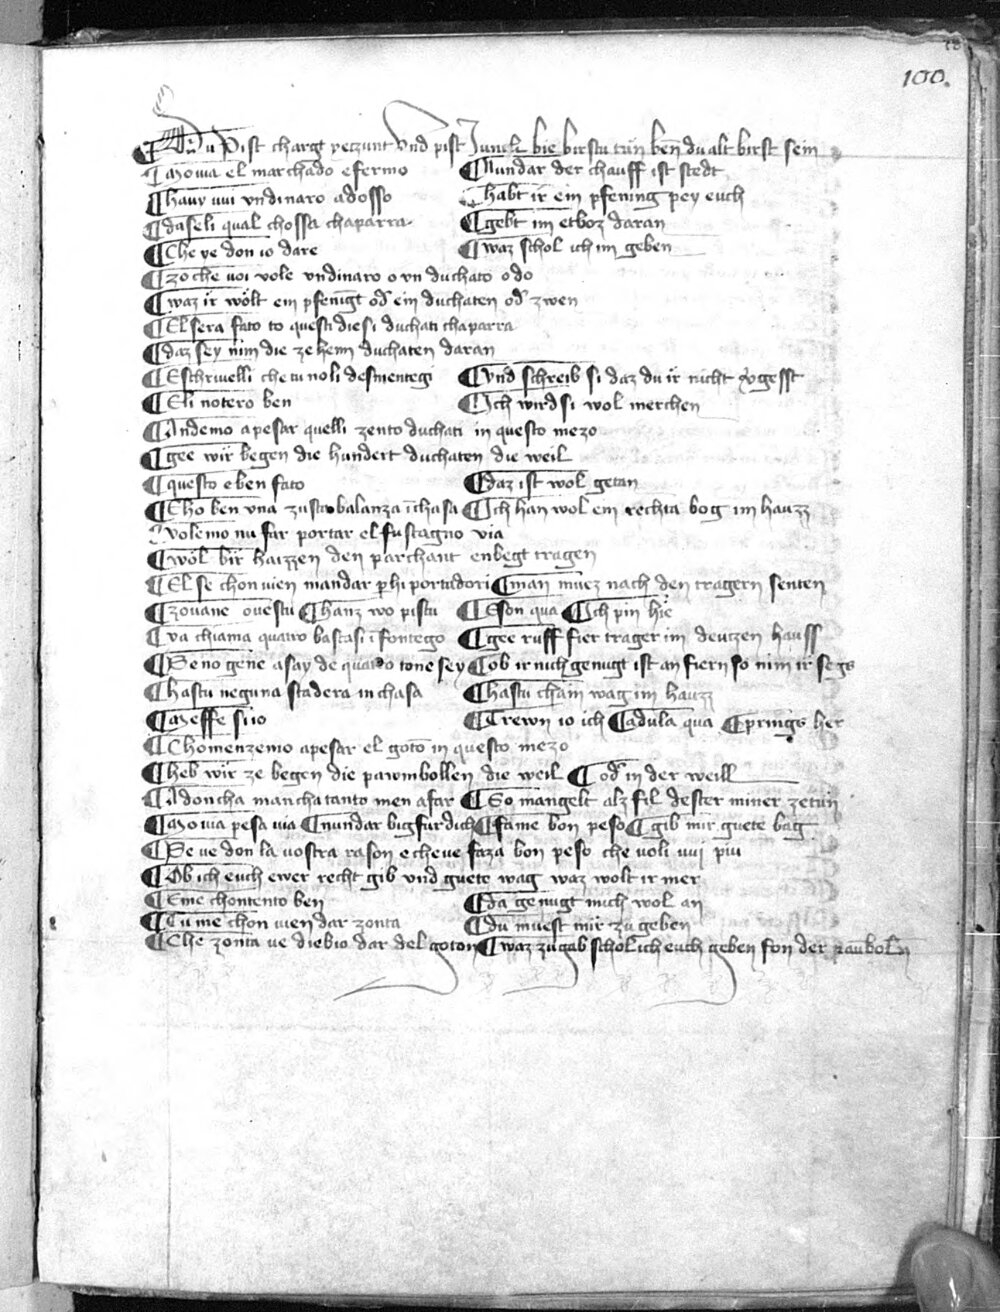 100.
Du pist chargt yeczunt vnd pist Junch bie birstu tün ben du alt birst sein
Mouia el marchado e fermo Nundar der chauff ist stedt
Hauy uui vn dinaro adosso Habt ir ein pfening pey euch
daseli qual chossa chaparra gebt im etboz daran
Che ve don io dare waz schol ich im geben
zo che uoi vole vn dinaro o vn duchato o do
waz ir wölt ein pfenigt od ein duchaten od zwen
El sera fato to questi diesi duchati chaparra
daz sey nim die zehenn duchaten daran
E schriuelli che tu no li desmentegi Vnd schreib si daz du ir nicht vgesst
E li notero ben Ich wird si wol merchen
Andemo a pesar quelli zento duchati in questo mezo
gee wir begen die hundert duchaten die weil
questo e ben fato daz ist wol getan
E ho ben vna zusta balanza i chasa Ich han wol ein rechta bog im hauzz
Volemo nu far portar el fustagno via
wöl bir haizzen den parchant enbegt tragen
El se chonuien mandar p hi portadori man muez nach den tragern senten
zouane ouestu Hanz wo pistu E son qua Ich pin hie
va chiama quatro bastasi i fontego gee ruff fier trager im deutzen hauss
Se no gene asay de quatro tone sey ob ir nich genugt ist an fiern so nim ir segs
Hastu neguna stadera in chasa hastu chain wag im hauzz
Meffe si io Trewn io ich Adula qua prings her
Chomenzemo a pesar el goton in questo mezo
heb wir ze begen die pawmbollen die weil od in der weill
Adoncha mancha tanto men a far So mangelt alz fil dester miner ze tün
Mouia pesa via nundar big fur dich fame bon peso gib mir guete bag
Se ve don la uostra rason e che ve faza bon peso che uoli uui piu
Ob ich euch ewer recht gib vnd guete wag waz wolt ir mer
E me chontento ben da genugt mich wol an
Tu me chonuien dar zonta du muest mir zu geben
Che zonta ve diebio dar del goton waz zu gab schol ich euch geben fon der